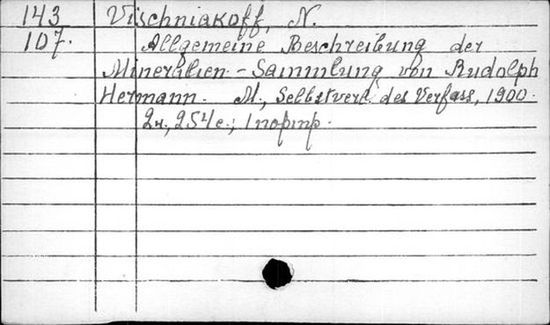 143 Vischniakoff, N.
107. Allgemeine Beschreibung der
Mineralien-Sammlung von Rudolph
Hermann. M., Selbstverl. des Verfass., 1900.
2н., 254с.; 1 портр.